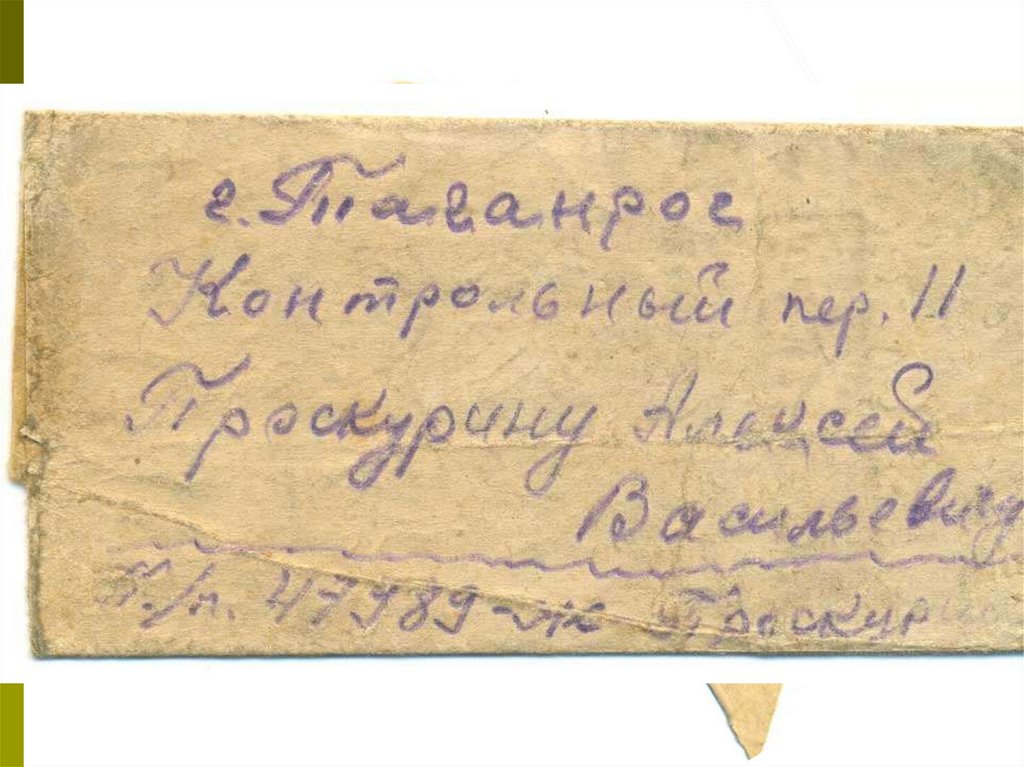 г. Таганрог
Контрольный пер. 11
Проскурину Алексей
Васильевичу
П./п. 47989-ж Проскурин